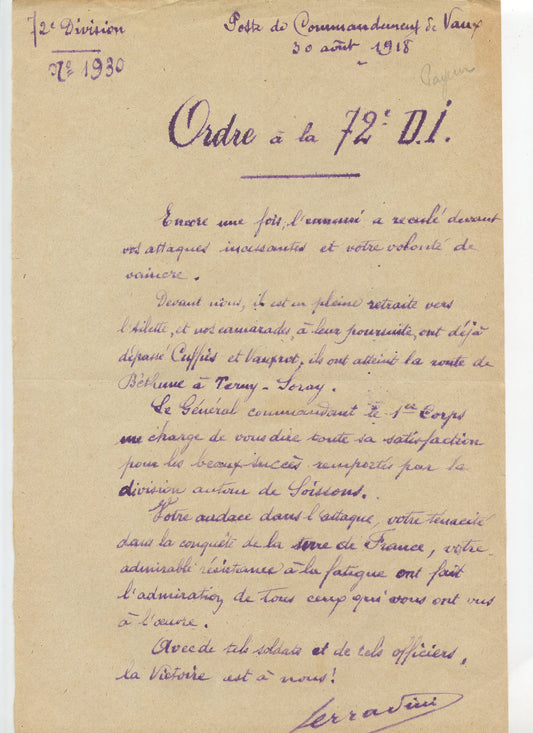 72e Division
Nº 1930
Poste de Commandement de Vaux
30 août 1918
Payeur
Ordre à la 72e D.I.
Encore une fois, l'ennemi a reculé devant
vos attaques incessantes et votre volonté de
vaincre.
Devant nous, il est en pleine retraite vers
l'Ailette, et vos camarades, à leur poursuite, ont déjà
dépassé Cuffies et Vauxrot, ils ont atteint la route de
Béthune à Terny-Sorny.
Le Général commandant le 1er Corps
me charge de vous dire toute sa satisfaction
pour les beaux succès remportés par la
division autour de Soissons.
Votre audace dans l'attaque, votre tenacité
dans la conquête de la terre de France, votre
admirable résistance à la fatigue ont fait
l'admiration de tous ceux qui vous ont vus
à l'œuvre.
Avec de tels soldats et de tels officiers,
la Victoire est à nous!
Ferradini